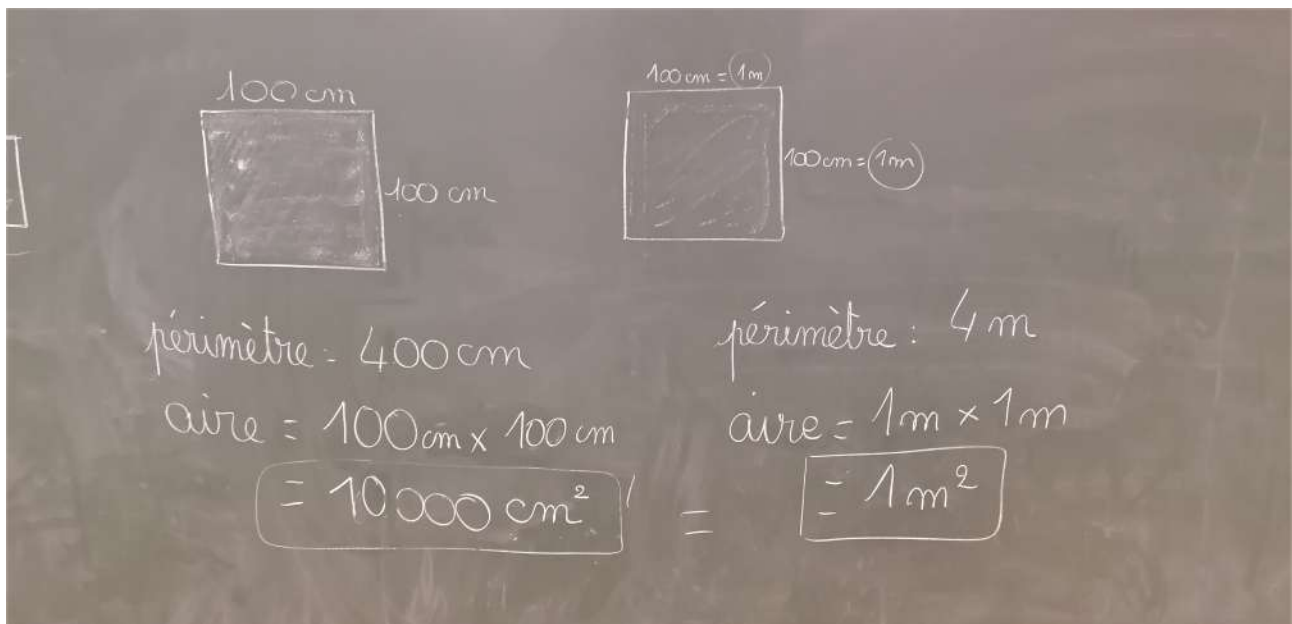 100 cm
100 cm
périmètre = 400 cm
aire = 100 cm x 100 cm
= 10 000 cm²
=
100 cm = 1m
100 cm = 1m
périmètre : 4 m
aire = 1m x 1m
= 1 m²